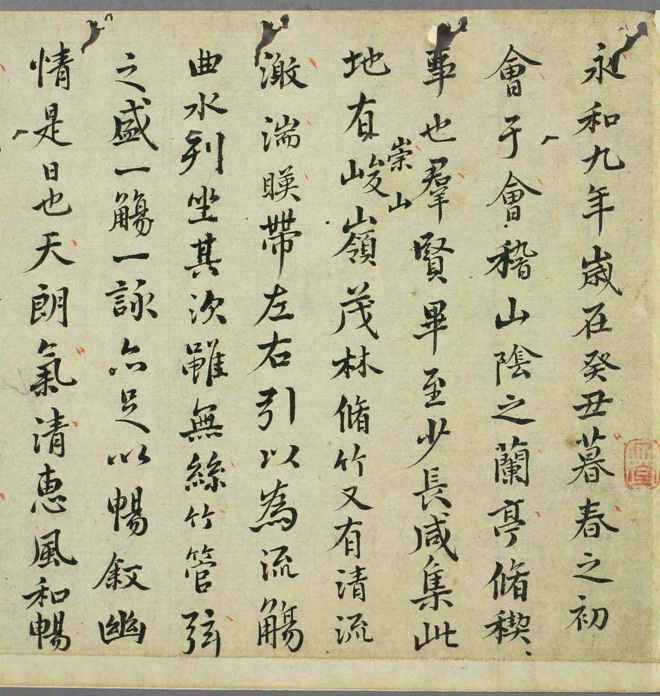 永和九年歲在癸丑暮春之初
會于會稽山陰之蘭亭脩稧
事也羣賢畢至少長咸集此
地有崇山峻嶺茂林脩竹又有清流
激湍暎帶左右引以為流觴
曲水列坐其次雖無絲竹管弦
之盛一觴一詠亦足以暢叙幽
情是日也天朗氣清惠風和暢